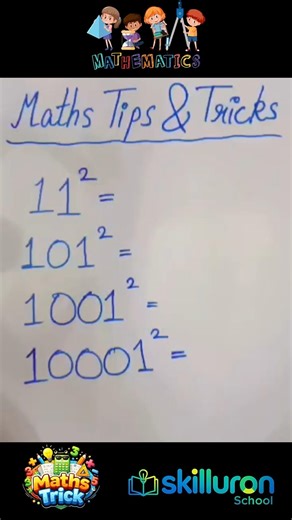 MATHEMATICS
Maths Tips & Tricks
11² =
101² =
1001² =
10001² =
Maths
Trick
skilluron
School